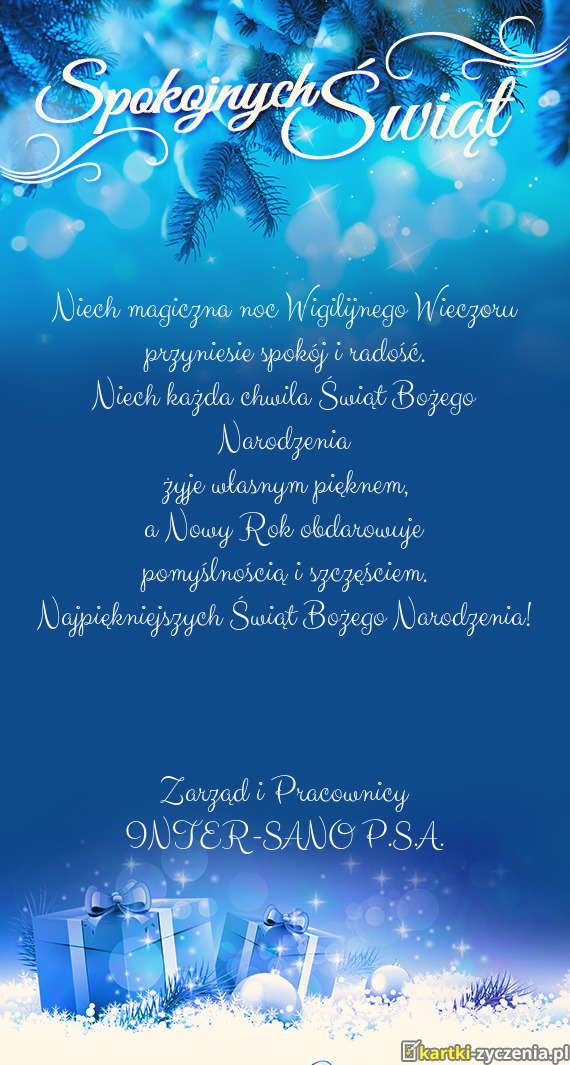 Spokojnych Świąt
Niech magiczna noc Wigilijnego Wieczoru
przyniesie spokój i radość.
Niech każda chwila Świąt Bożego
Narodzenia
żyje własnym pięknem,
a Nowy Rok obdarowuje
pomyślnością i szczęściem.
Najpiękniejszych Świąt Bożego Narodzenia!
Zarząd i Pracownicy
INTER-SANO P.S.A.
kartki-zyczenia.pl